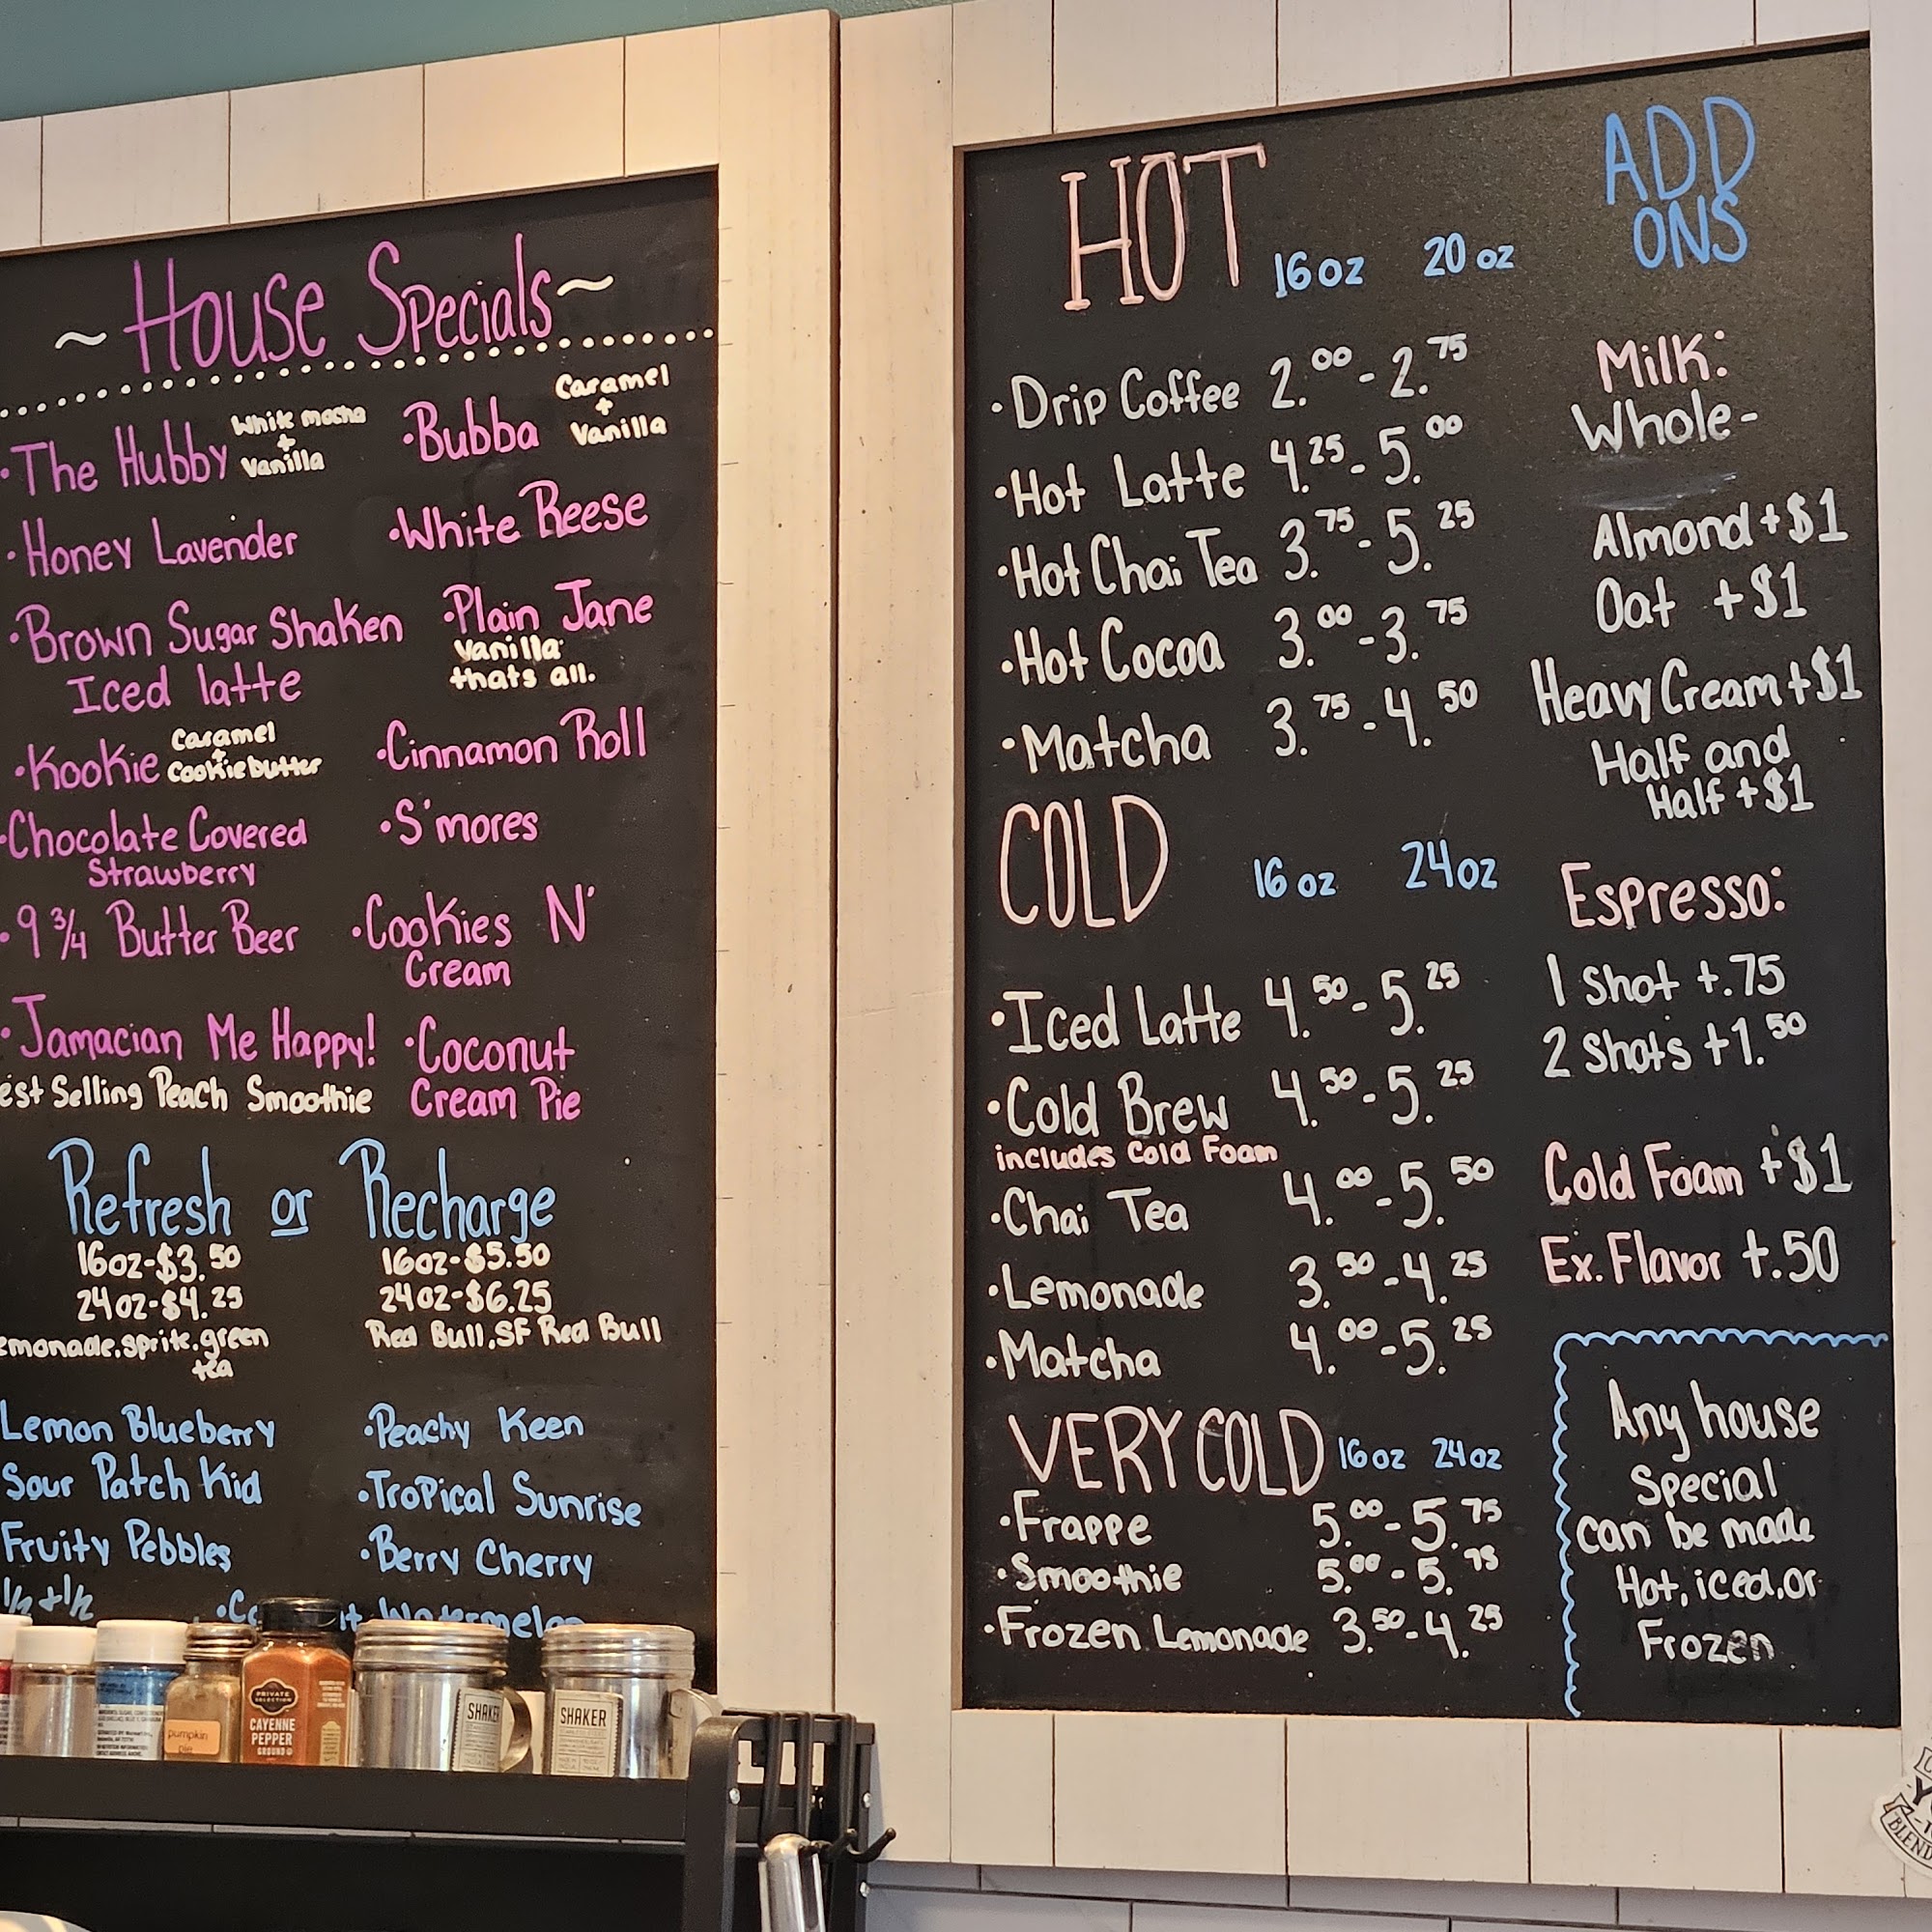 ~ House Specials ~
·The Hubby White mocha + Vanilla
·Honey Lavender
·Brown Sugar Shaken
Iced latte
·Kookie Caramel + Cookie butter
·Chocolate Covered
Strawberry
·9 3/4 Butter Beer
·Jamacian Me Happy!
Selling Peach Smoothie
·Bubba Caramel + Vanilla
·White Reese
·Plain Jane
Vanilla
thats all.
·Cinnamon Roll
·S'mores
·Cookies N'
Cream
·Coconut
Cream Pie
Refresh or Recharge
16oz-$3.50
24oz-$4.25
sprite, green
tea
16oz-$5.50
24oz-$6.25
Red Bull, SF Red Bull
Lemon Blueberry
Sour Patch Kid
Fruity Pebbles
1/2 + 1/2
·Peachy Keen
·Tropical Sunrise
·Berry Cherry
Watermelon
HOT 16 oz 20 oz
·Drip Coffee 2.00-2.75
·Hot Latte 4.25-5.00
·Hot Chai Tea 3.75-5.25
·Hot Cocoa 3.00-3.75
·Matcha 3.75-4.50
COLD 16 oz 24oz
·Iced Latte 4.50-5.25
·Cold Brew 4.50-5.25
includes Cold Foam
·Chai Tea 4.00-5.50
·Lemonade 3.50-4.25
·Matcha 4.00-5.25
VERY COLD 16oz 24oz
·Frappe 5.00-5.75
·Smoothie 5.00-5.75
·Frozen Lemonade 3.50-4.25
ADD
ONS
Milk:
Whole-
Almond +$1
Oat +$1
Heavy Cream +$1
Half and
Half +$1
Espresso:
1 Shot +.75
2 Shots +1.50
Cold Foam +$1
Ex. Flavor +.50
Any house
Special
can be made
Hot, iced, or
Frozen
pumpkin
pie
PRIVATE
SELECTION
CAYENNE
PEPPER
GROUND
SHAKER
SHAKER